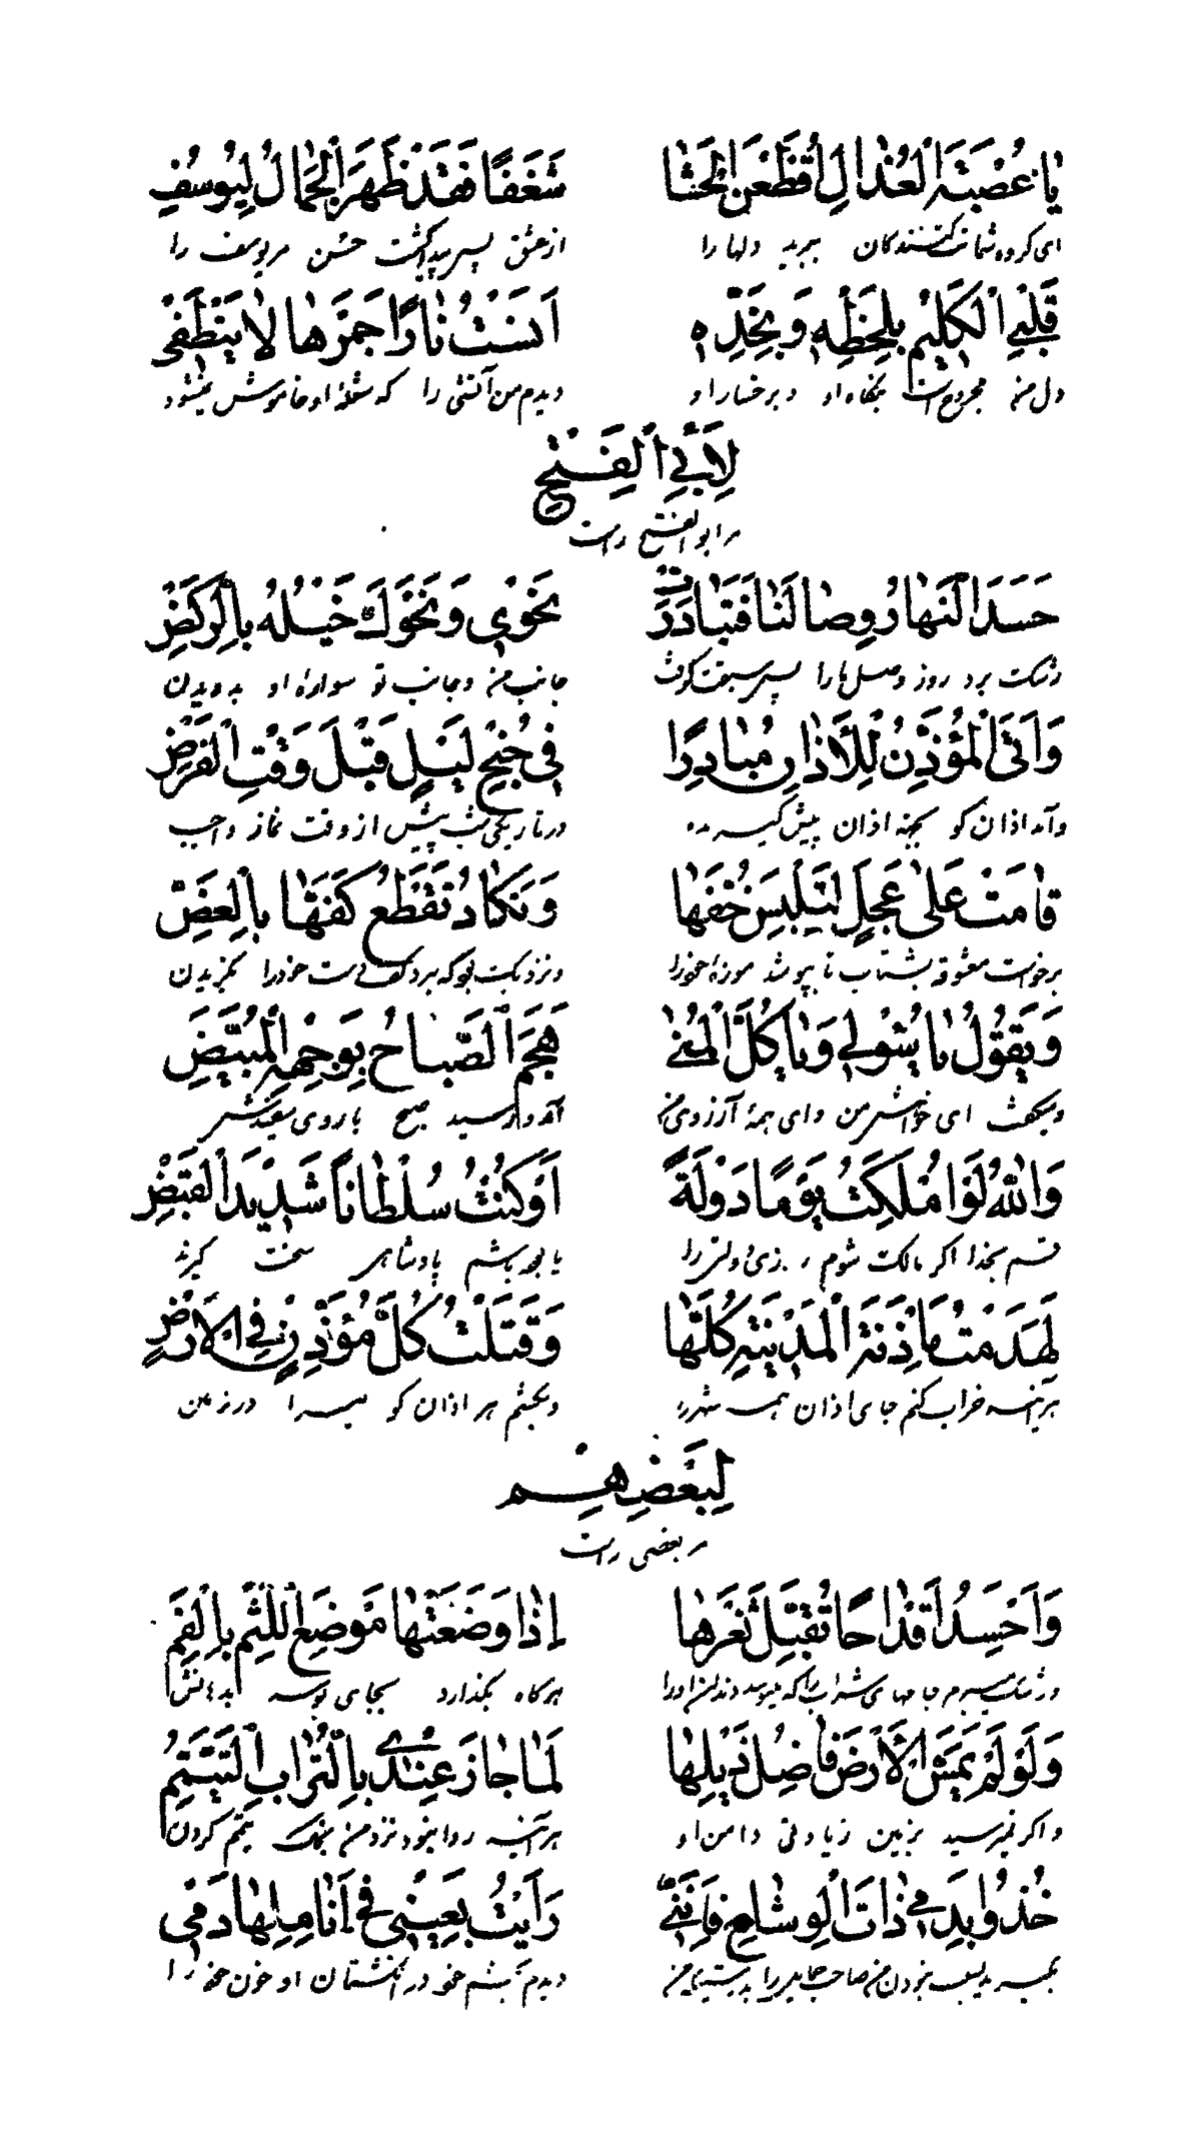 يَا عُصْبَةَ الْعُذَّالِ قَطِّعْنَ الْحَشَا شَغَفًا فَقَدْ ظَهَرَ الْجَمَالُ لِيُوسُفِ
ای گروه شماتت کنندگان ببرید دلها را از عشق پس پیدا گشت حسن مر یوسف را
قَلْبِي الْكَلِيمُ بِلَحْظِهِ وَبِخَدِّهِ آنَسْتُ نَارًا جَمْرُهَا لَا يَنْطَفِي
دل من مجروح است بنگاه او و برخسار او دیدم من آتشی را که شعلهٔ او خاموش نمیشود
لِأَبِي الْفَتْحِ
مر ابو الفتح راست
حَسَدَ النَّهَارُ وِصَالَنَا فَتَبَادَرَتْ نَحْوِي وَنَحْوَكَ خَيْلُهُ بِالرَّكْضِ
رشک برد روز وصل ما را پس سبقت گرفت جانب من و جانب تو سوارهٔ او به دویدن
وَأَتَى الْمُؤَذِّنُ لِلْأَذَانِ مُبَادِرًا فِي جُنْحِ لَيْلٍ قَبْلَ وَقْتِ الْفَرْضِ
و آمد اذان گو بجهة اذان پیش گیرنده در تاریکی شب پیش از وقت نماز واجب
قَامَتْ عَلَى عَجَلٍ لِتَلْبَسَ خُفَّهَا وَتَكَادُ تَقْطَعُ كَفَّهَا بِالْعَضِّ
برخواست معشوقه بشتاب تا بپوشد موزهٔ خود را و نزدیکست که ببرد کف دست خود را بگزیدن
وَيَقُولُ يَا سُؤْلِي وَيَا كُلَّ الْمُنَى هَجَمَ الصَّبَاحُ بِوَجْهِهِ الْمُبْيَضِّ
و میگفت ای خواهش من و ای همهٔ آرزوی من آمد و رسید صبح با روی سفیدش
وَاللهُ لَوْ مُلِّكْتُ يَوْمًا دَوْلَةً أَوْ كُنْتُ سُلْطَانًا شَدِيدَ الْقَبْضِ
قسم بخدا اگر مالک شوم روزی دولتی را یا بوده باشم پادشاهی سخت گیرنده
لَهَدَمْتُ مَأْذَنَةَ الْمَدِينَةِ كُلَّهَا وَقَتَلْتُ كُلَّ مُؤَذِّنٍ فِي الْأَرْضِ
هر آینه خراب کنم جای اذان همه شهر را و بکشم هر اذان گو در زمین
لِبَعْضِهِمْ
مر بعضی راست
وَأَحْسُدُ أَقْدَاحًا تُقَبِّلُ ثَغْرَهَا إِذَا وَضَعَتْهَا مَوْضِعَ اللَّثْمِ بِالْفَمِ
و رشک میبرم جامهای شراب را که میبوسد دندان او را هر گاه بگذارد بجای بوسه بدهانش
وَلَوْ لَمْ يَمَسَّ الْأَرْضَ فَاضِلُ ذَيْلِهَا لَمَا جَازَ عِنْدِي بِالتُّرَابِ التَّيَمُّمُ
و اگر نمیرسید بزمین زیادتی دامن او هر آینه روا نبود نزد من بخاک تیمم کردن
خُذُوا بِدَمِي ذَاتَ الْوِشَاحِ فَإِنَّنِي رَأَيْتُ بِعَيْنِي فِي أَنَامِلِهَا دَمِي
بگیرید بسبب خون من صاحب حمایل را بدرستیکه من دیدم بچشم خود در انگشتان او خون خود را